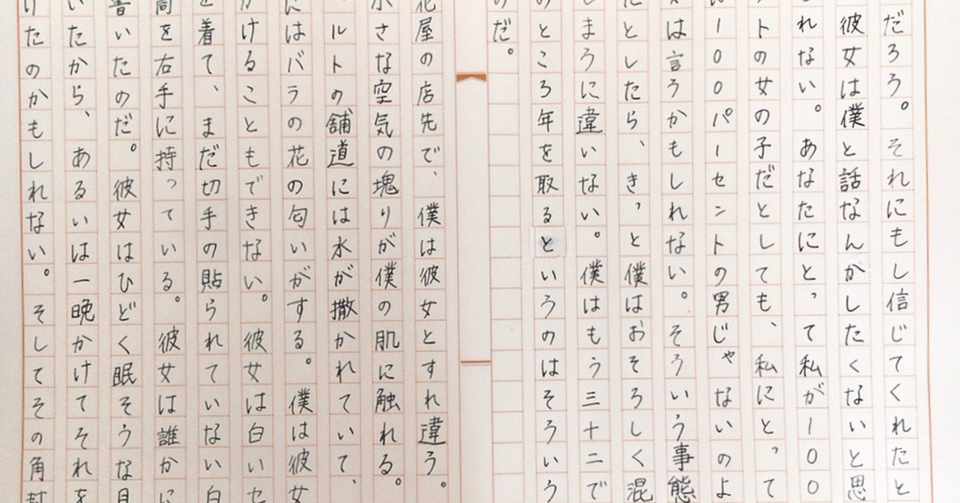 だろう。それにもし信じてくれたと
彼女は僕と話なんかしたくないと思
れない。あなたにとって私が100
トの女の子だとしても、私にとって
は100パーセントの男じゃないのよ
は言うかもしれない。そういう事態
たとしたら、きっと僕はおそろしく混
しまうに違いない。僕はもう三十二で
のところ年を取るというのはそういう
のだ。
花屋の店先で、僕は彼女とすれ違う。
小さな空気の塊りが僕の肌に触れる。
ルトの舗道には水が撒かれていて、
にはバラの花の匂いがする。僕は彼女
かけることもできない。彼女は白いセ
を着て、まだ切手の貼られていない白
筒を右手に持っている。彼女は誰かに
書いたのだ。彼女はひどく眠そうな目
いたから、あるいは一晩かけてそれを
けたのかもしれない。そしてその角封